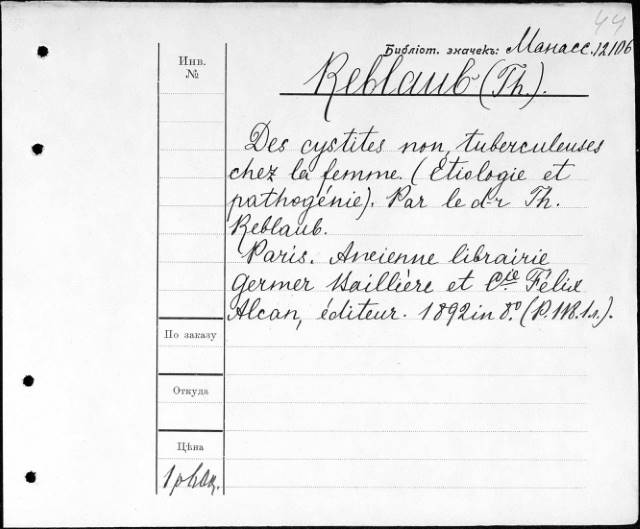 44
Библіот. значекъ: Манасс. 12106
Инв.
№
Reblaub (Th.).
Des cystites non tuberculeuses
chez la femme. (Etiologie et
pathogénie). Par le d-r Th.
Reblaub.
Paris. Ancienne librairie
Germer Baillière et Cie Félix
Alcan, éditeur. 1892 in 8.º (P. 118. 1 л.).
По заказу
Откуда
Цѣна